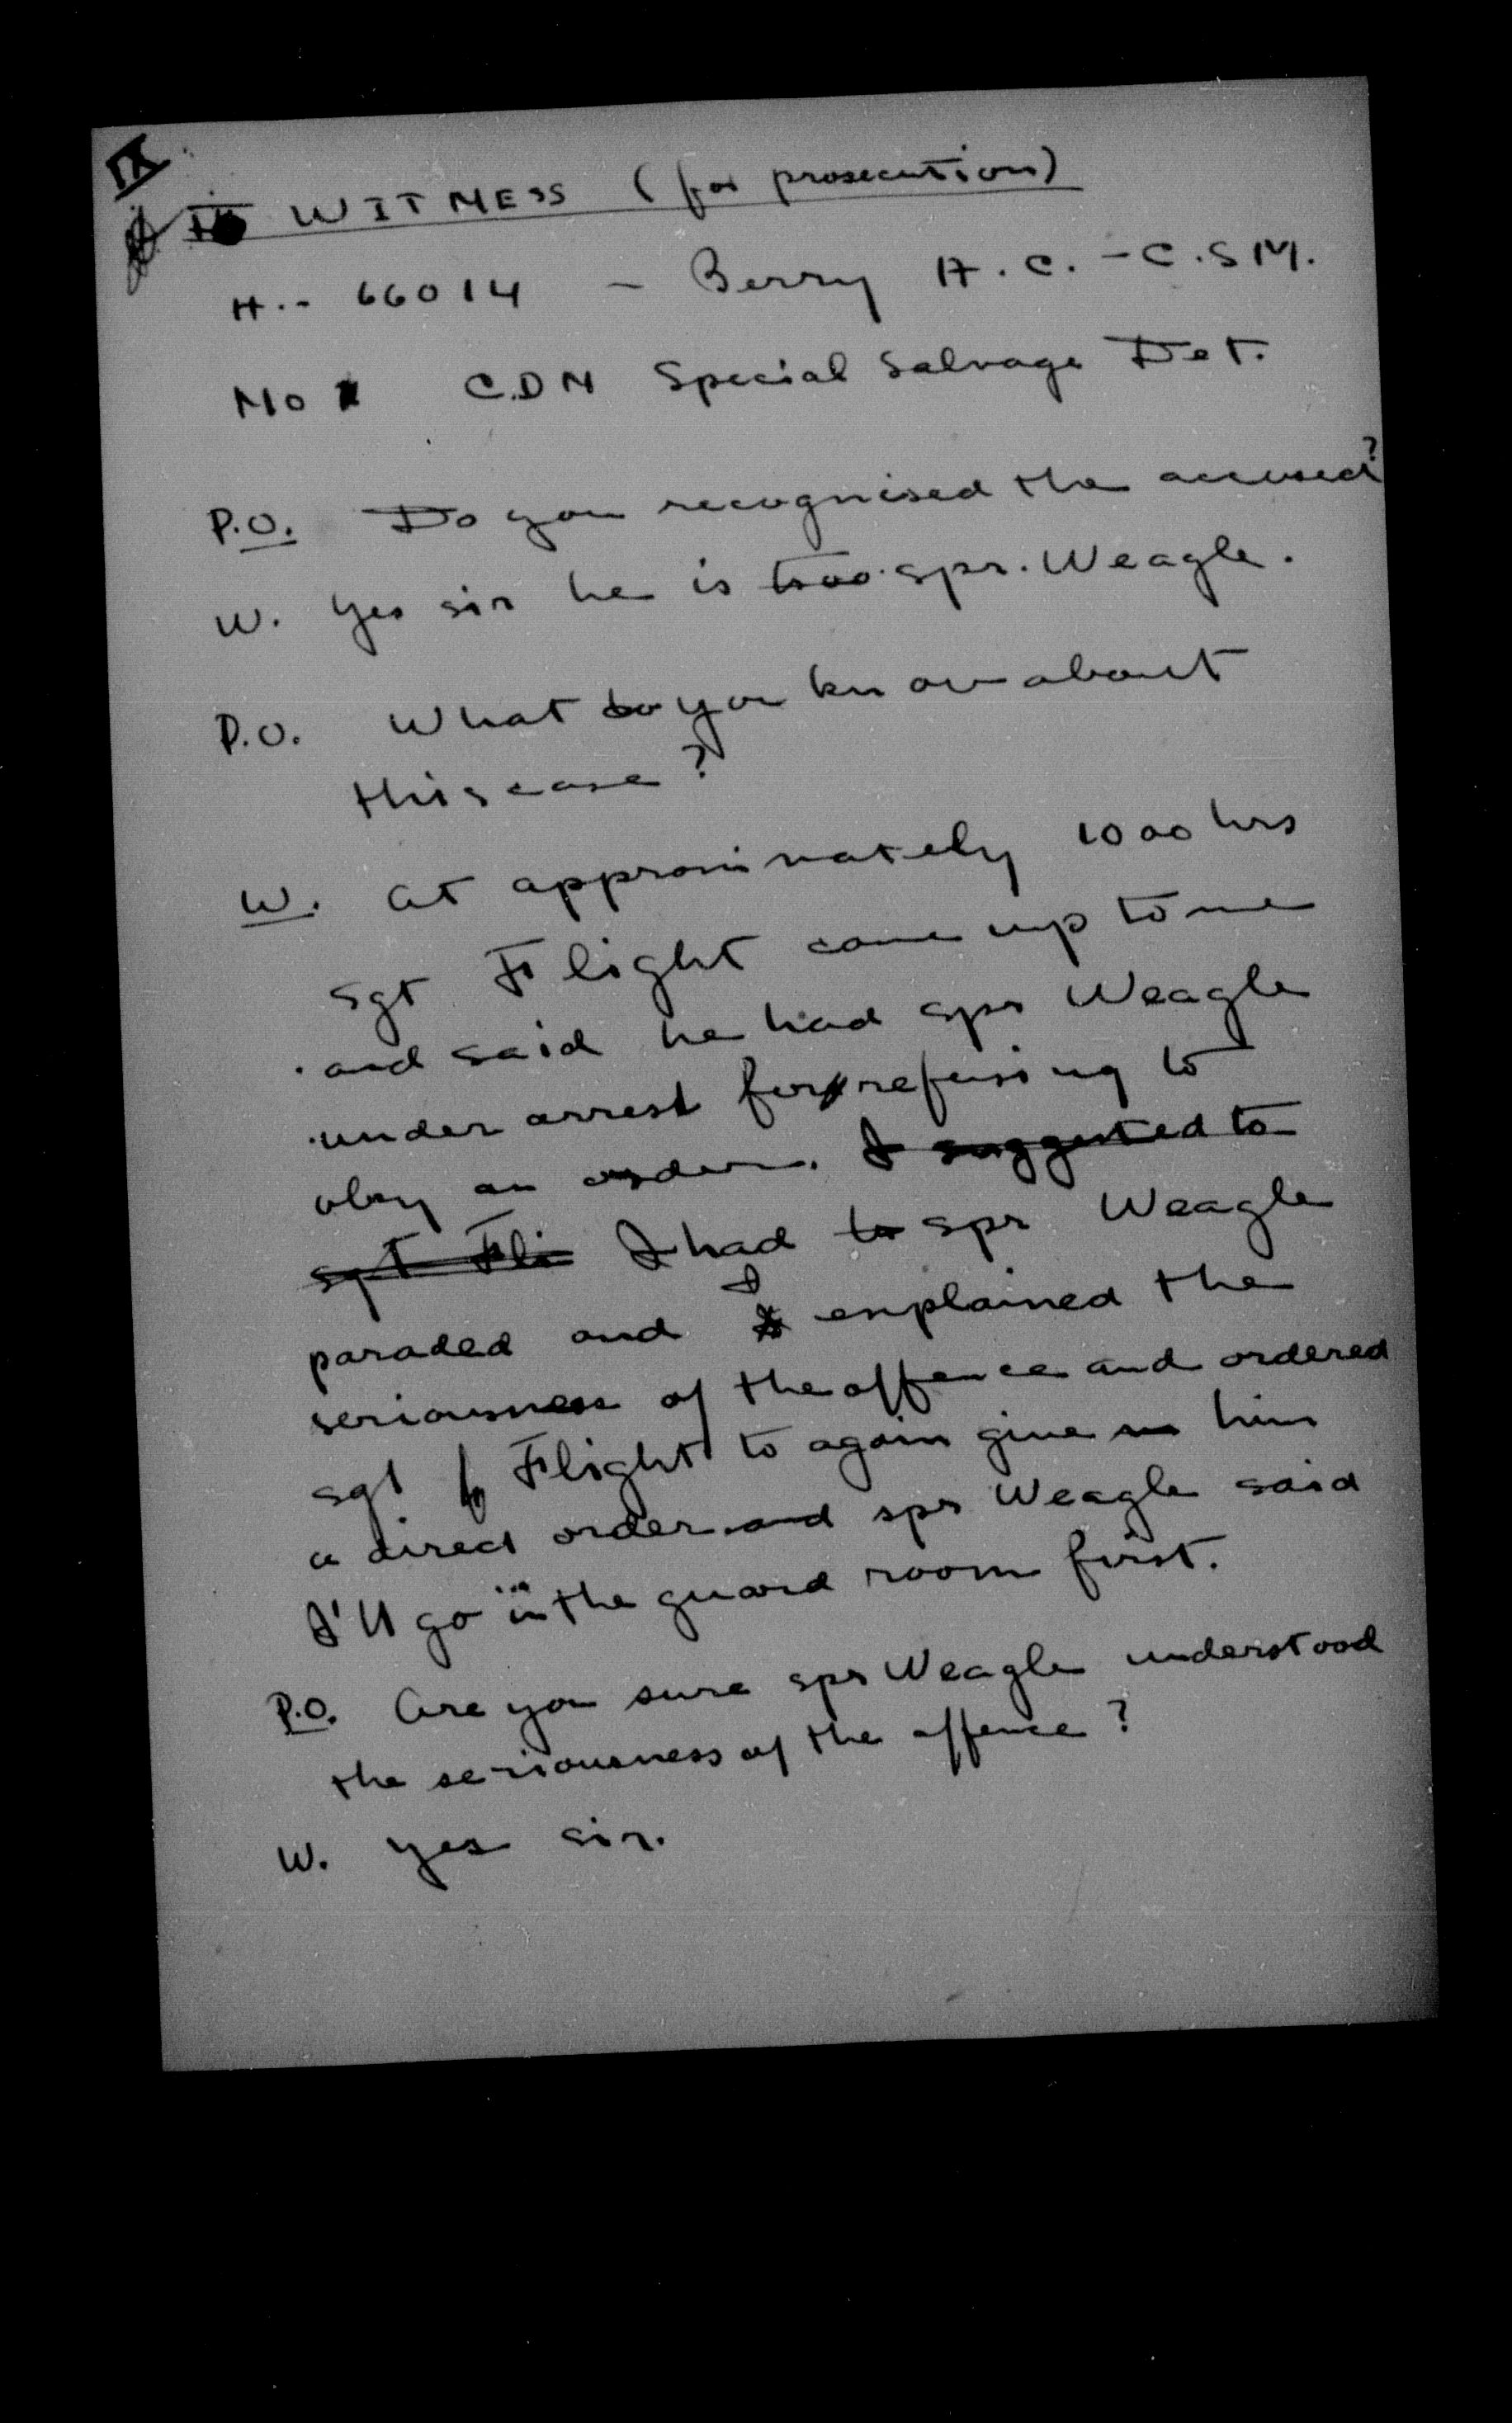 IX
WITNESS (for prosecution)
H.- 66014 - Berry H.C. - C.S.M.
No 1 C.D.N Special Salvage Det.
P.O. Do you recognised the accused?
W. Yes sir he is spr. Weagle.
P.O. What do you know about
this case?
W. At approximately 1000 hrs
sgt Flight came up to me
and said he had spr Weagle
under arrest for refusing to
obey an order. I suggested to
sgt Fli I had to spr Weagle
paraded and I explained the
seriousness of the offence and ordered
sgt Flight to again give him
a direct order and spr Weagle said
I'll go in the guard room first.
P.O. Are you sure spr Weagle understood
the seriousness of the offence?
W. Yes sir.